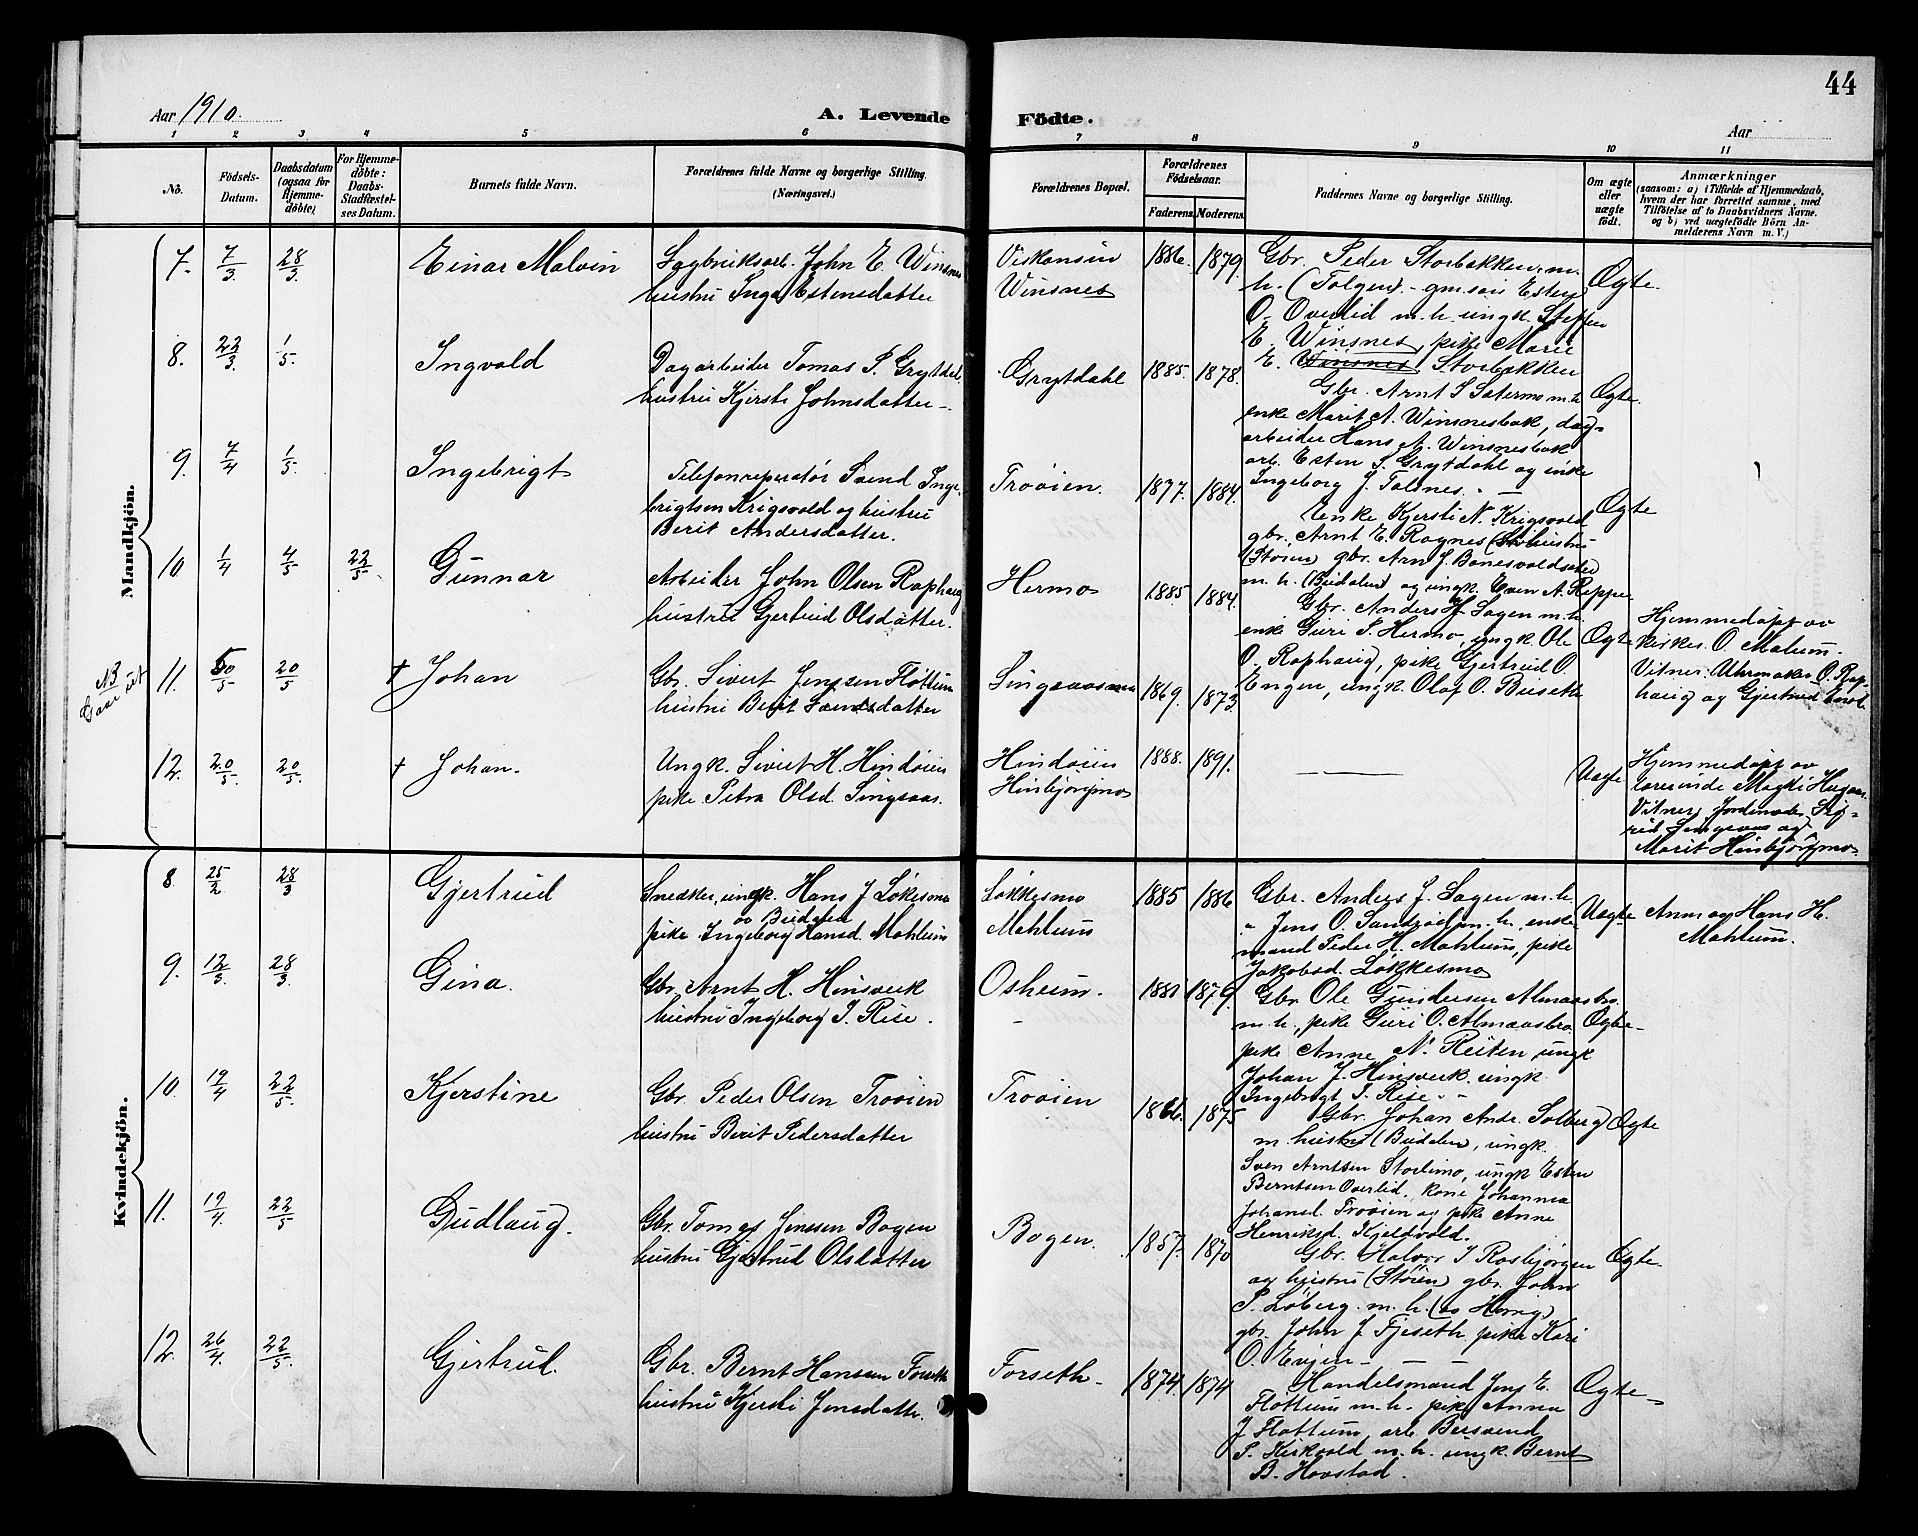 44
Aar 1910.
A. Levende Födte.
Aar
1 2 3 4 5 6 7 8 9 10 11
No.
Födsels-Datum.
Daabsdatum (ogsaa for Hjemme-döbte)
For Hjemme-döbte: Daabs-Stadfæstel-ses Datum.
Barnets fulde Navn.
Forældrenes fulde Navne og borgerlige Stilling. (Næringsvei.)
Forældrenes Bopæl.
Forældrenes Födselsaar.
Faderens Moderens
Faddernes Navne og borgerlige Stilling.
Om ægte eller uægte födt.
Anmærkninger
(saasom: a) i Tilfælde af Hjemmedaab,
hvem der har forrettet samme, med
Tilföielse af to Daabsvidners Navne.
og b) ved uægtefödte Börn An-
melderens Navn m. V.)
Mandkjön.
7. 7/3 28/3 Einar Malvin
Sagbruksarb. John E. Winsnes
hustru Inga Estensdatter
Viskansin
Winsnes
1886. 1879.
Gbr. Peder Storbakken m.
h. (Tolgen). - gm.søis Esten
O. Overlid m. h. ungk. Steffen
E. Winsnes, pike Marie
E. Winsnes Storbakken
Ægte.
8. 22/3 1/5 Ingvald
Dagarbeider Tomas S. Grytdal
hustru Kjersti Johnsdatter
Grytdahl
1885. 1878.
Gbr. Arnt S. Sætermo m. h.
enke Marit A. Winsnesbak, dag-
arbeider Hans A. Winsnesbak
arb. Esten S. Grytdahl og enke
Ingeborg J. Folsnes.
Ægte.
9. 7/4 1/5 Ingebrigt
Telefonreperatør Svend Inge-
brigtsen Krigsvold og hustru
Berit Andersdatter.
Trøøien.
1877. 1884.
Enke Kjersti N. Krigsvold
gbr. Arnt E. Rognes hustru
(Støren) gbr. Arn J. Bonesvoldsæter
m. h. (Budalen) og ungk. Even A. Reppe
Ægte
10 1/4 4/5 22/5 Gunnar
Arbeider John Olsen Raphaug
hustru Gjertrud Olsdatter.
Hermo
1885 1884.
Gbr. Anders Sagen m. h.
enke Guri S. Hermo, ungk Ole
O. Raphaug, pike Gjertrud O.
Engen, ungk Olaf O. Buseth
Ægte
Hjemmedøpt av
kirkes. O. Malum.
Vitner: Uhrmaker O. Rap-
haug og Gjertrud
NB
Gaar ut
11. 20/5 20/5 † Johan
Gbr. Sivert Jenssen Fløttum
hustru Berit Svendsdatter
Singsaasmo
1869. 1873.
12. 20/5 20/5 † Johan.
Ungk. Sivert H. Hindøien
pike Petra Olsd. Singsaas.
Hindøien
Hinbjørgmo
1888. 1891.
Uægte
Hjemmedøpt av
lærerinde Magli Hagen
Vitner, Jordmoder Sig-
rid Singsaas og
Marit Hinbjørgmo.
Kvindekjön.
8 25/2 28/3 Gjertrud
Snedker, ungk. Hans J. Løkkesmo
av Budalen
pike Ingeborg Hansd. Mohlum
Løkkesmo
Mohlum
1885 1886
Gbr. Anders J. Sagen m. h.
" Jens O. Sandrød m. h. enke-
mand Peder H. Mohlum, pike
Jakobsd. Løkkesmo
Uægte
Anm. og Hans H.
Mohlum.
9. 12/3 28/3 Gina.
Gbr. Arnt H. Hinsverk
hustru Ingeborg I. Rise.
Osheim.
1880 1879.
Gbr. Ole Gundersen Almaasbro.
m. h., pike Guri O. Almaasbro
pike Anne N. Reiten ungk
Johan J. Hinsverk. ungk
Ingebrigt I. Rise.
Ægte
10. 19/4 22/5 Kjerstine
Gbr. Peder Olsen Trøøien
hustru Berit Pedersdatter
Trøøien
1866. 1875
Gbr. Johan Andr. Solberg
m. hustru (Budalen), ungk.
Sven Arntsen Storlimo, ungk Esten
Berntsen Overlid, kone Johanna
Johansd. Trøøien og pike Anne
Henriksd. Kjeldvold.
Ægte
11. 19/4. 22/5 Gudlaug.
Gbr. Tomas Jenssen Bogen
hustru Gjertrud Olsdatter
Bogen.
1857. 1870
Gbr. Halvor I Rosbjørgen
og hustru (Støren) gbr. John
P. Løberg. m. h. (av Horrig)
gbr. John J. Fjeseth pike Kari
O. Evjen
Ægte.
12. 26/4. 22/5. Gjertrud.
Gbr. Bernt Hansen Forseth
hustru Kjersti Jensdatter.
Forseth
1874. 1874
Handelsmand Jens E.
Fløttum m. h. pike Anna
J Fløttum, arb. Bersvend
S. Kirkvold m. h. ungk. Bernt
B. Hovstad.
Ægte